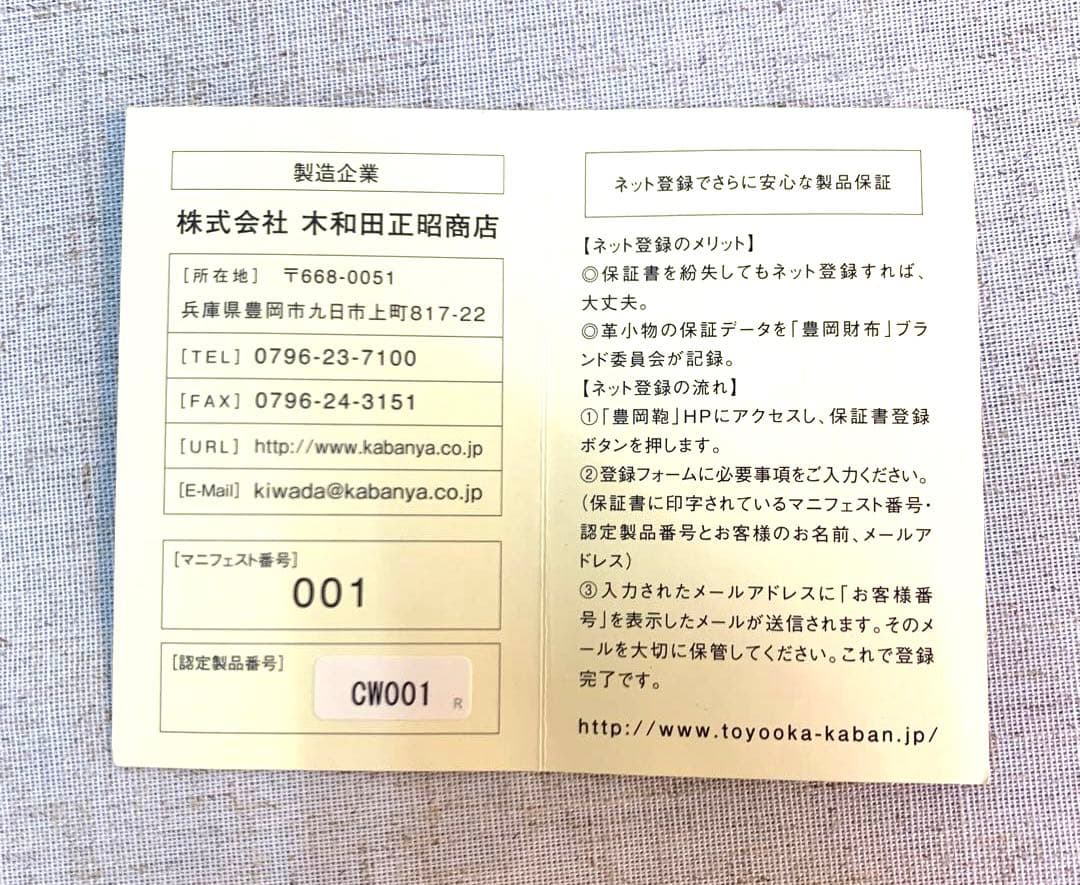 製造企業
株式会社 木和田正昭商店
[所在地] 〒668-0051
兵庫県豊岡市九日市上町817-22
[TEL] 0796-23-7100
[FAX] 0796-24-3151
[URL] http://www.kabanya.co.jp
[E-Mail] kiwada@kabanya.co.jp
[マニフェスト番号]
001
[認定製品番号]
CW001 R
ネット登録でさらに安心な製品保証
【ネット登録のメリット】
◎保証書を紛失してもネット登録すれば、
大丈夫。
◎革小物の保証データを「豊岡財布」ブラ
ンド委員会が記録。
【ネット登録の流れ】
①「豊岡鞄」HPにアクセスし、保証書登録
ボタンを押します。
②登録フォームに必要事項をご入力ください。
(保証書に印字されているマニフェスト番号・
認定製品番号とお客様のお名前、メールア
ドレス)
③入力されたメールアドレスに「お客様番
号」を表示したメールが送信されます。そのメ
ールを大切に保管してください。これで登録
完了です。
http://www.toyooka-kaban.jp/